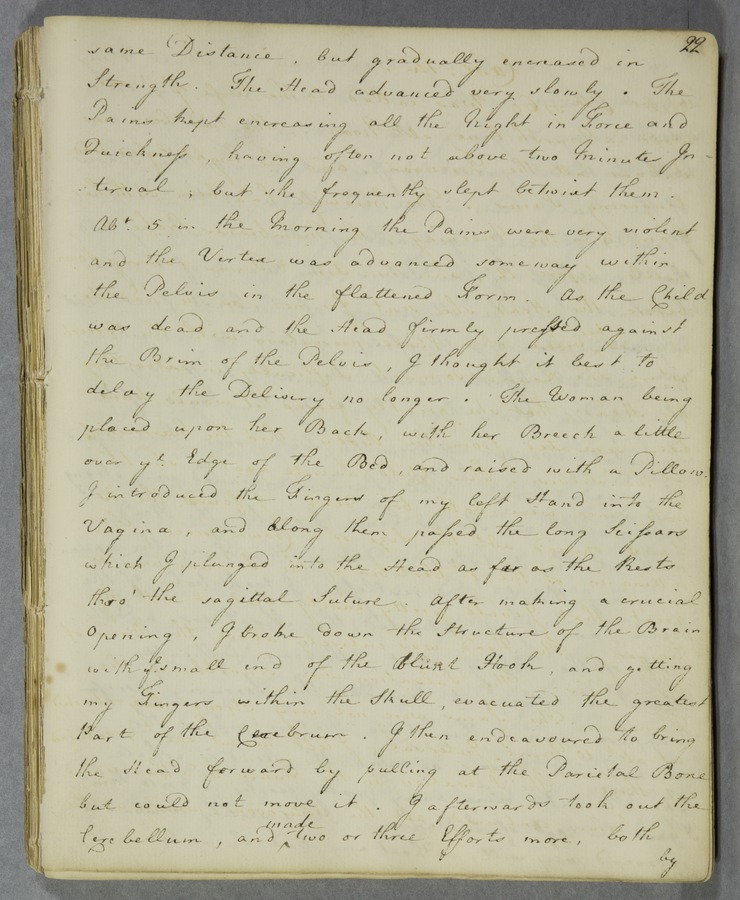 22
same Distance, but gradually encreased in
Strength. The Head advanced very slowly. The
Pains kept encreasing all the Night in Force and
Quickness, having often not above two Minutes In-
terval, but she frequently slept betwixt them.
Abt. 5 in the Morning the Pains were very violent
and the Vertex was advanced someway within
the Pelvis in the flattened Form. As the Child
was dead and the Head firmly pressed against
the Brim of the Pelvis, I thought it best to
delay the Delivery no longer. The Woman being
placed upon her Back, with her Breech a little
over ye. Edge of the Bed, and raised with a Pillow.
I introduced the Fingers of my left Hand into the
Vagina, and along them passed the long Scissars
which I plunged into the Head as far as the Rests
thro' the sagittal Suture. After making a crucial
Opening, I broke down the Structure of the Brain
with ye. small end of the Blunt Hook, and getting
my Fingers within the Skull, evacuated the greatest
Part of the Cerebrum. I then endeavoured to bring
the Head forward by pulling at the Parietal Bone
but could not move it. I afterwards took out the
Cerebellum, and made two or three Efforts more, both
by